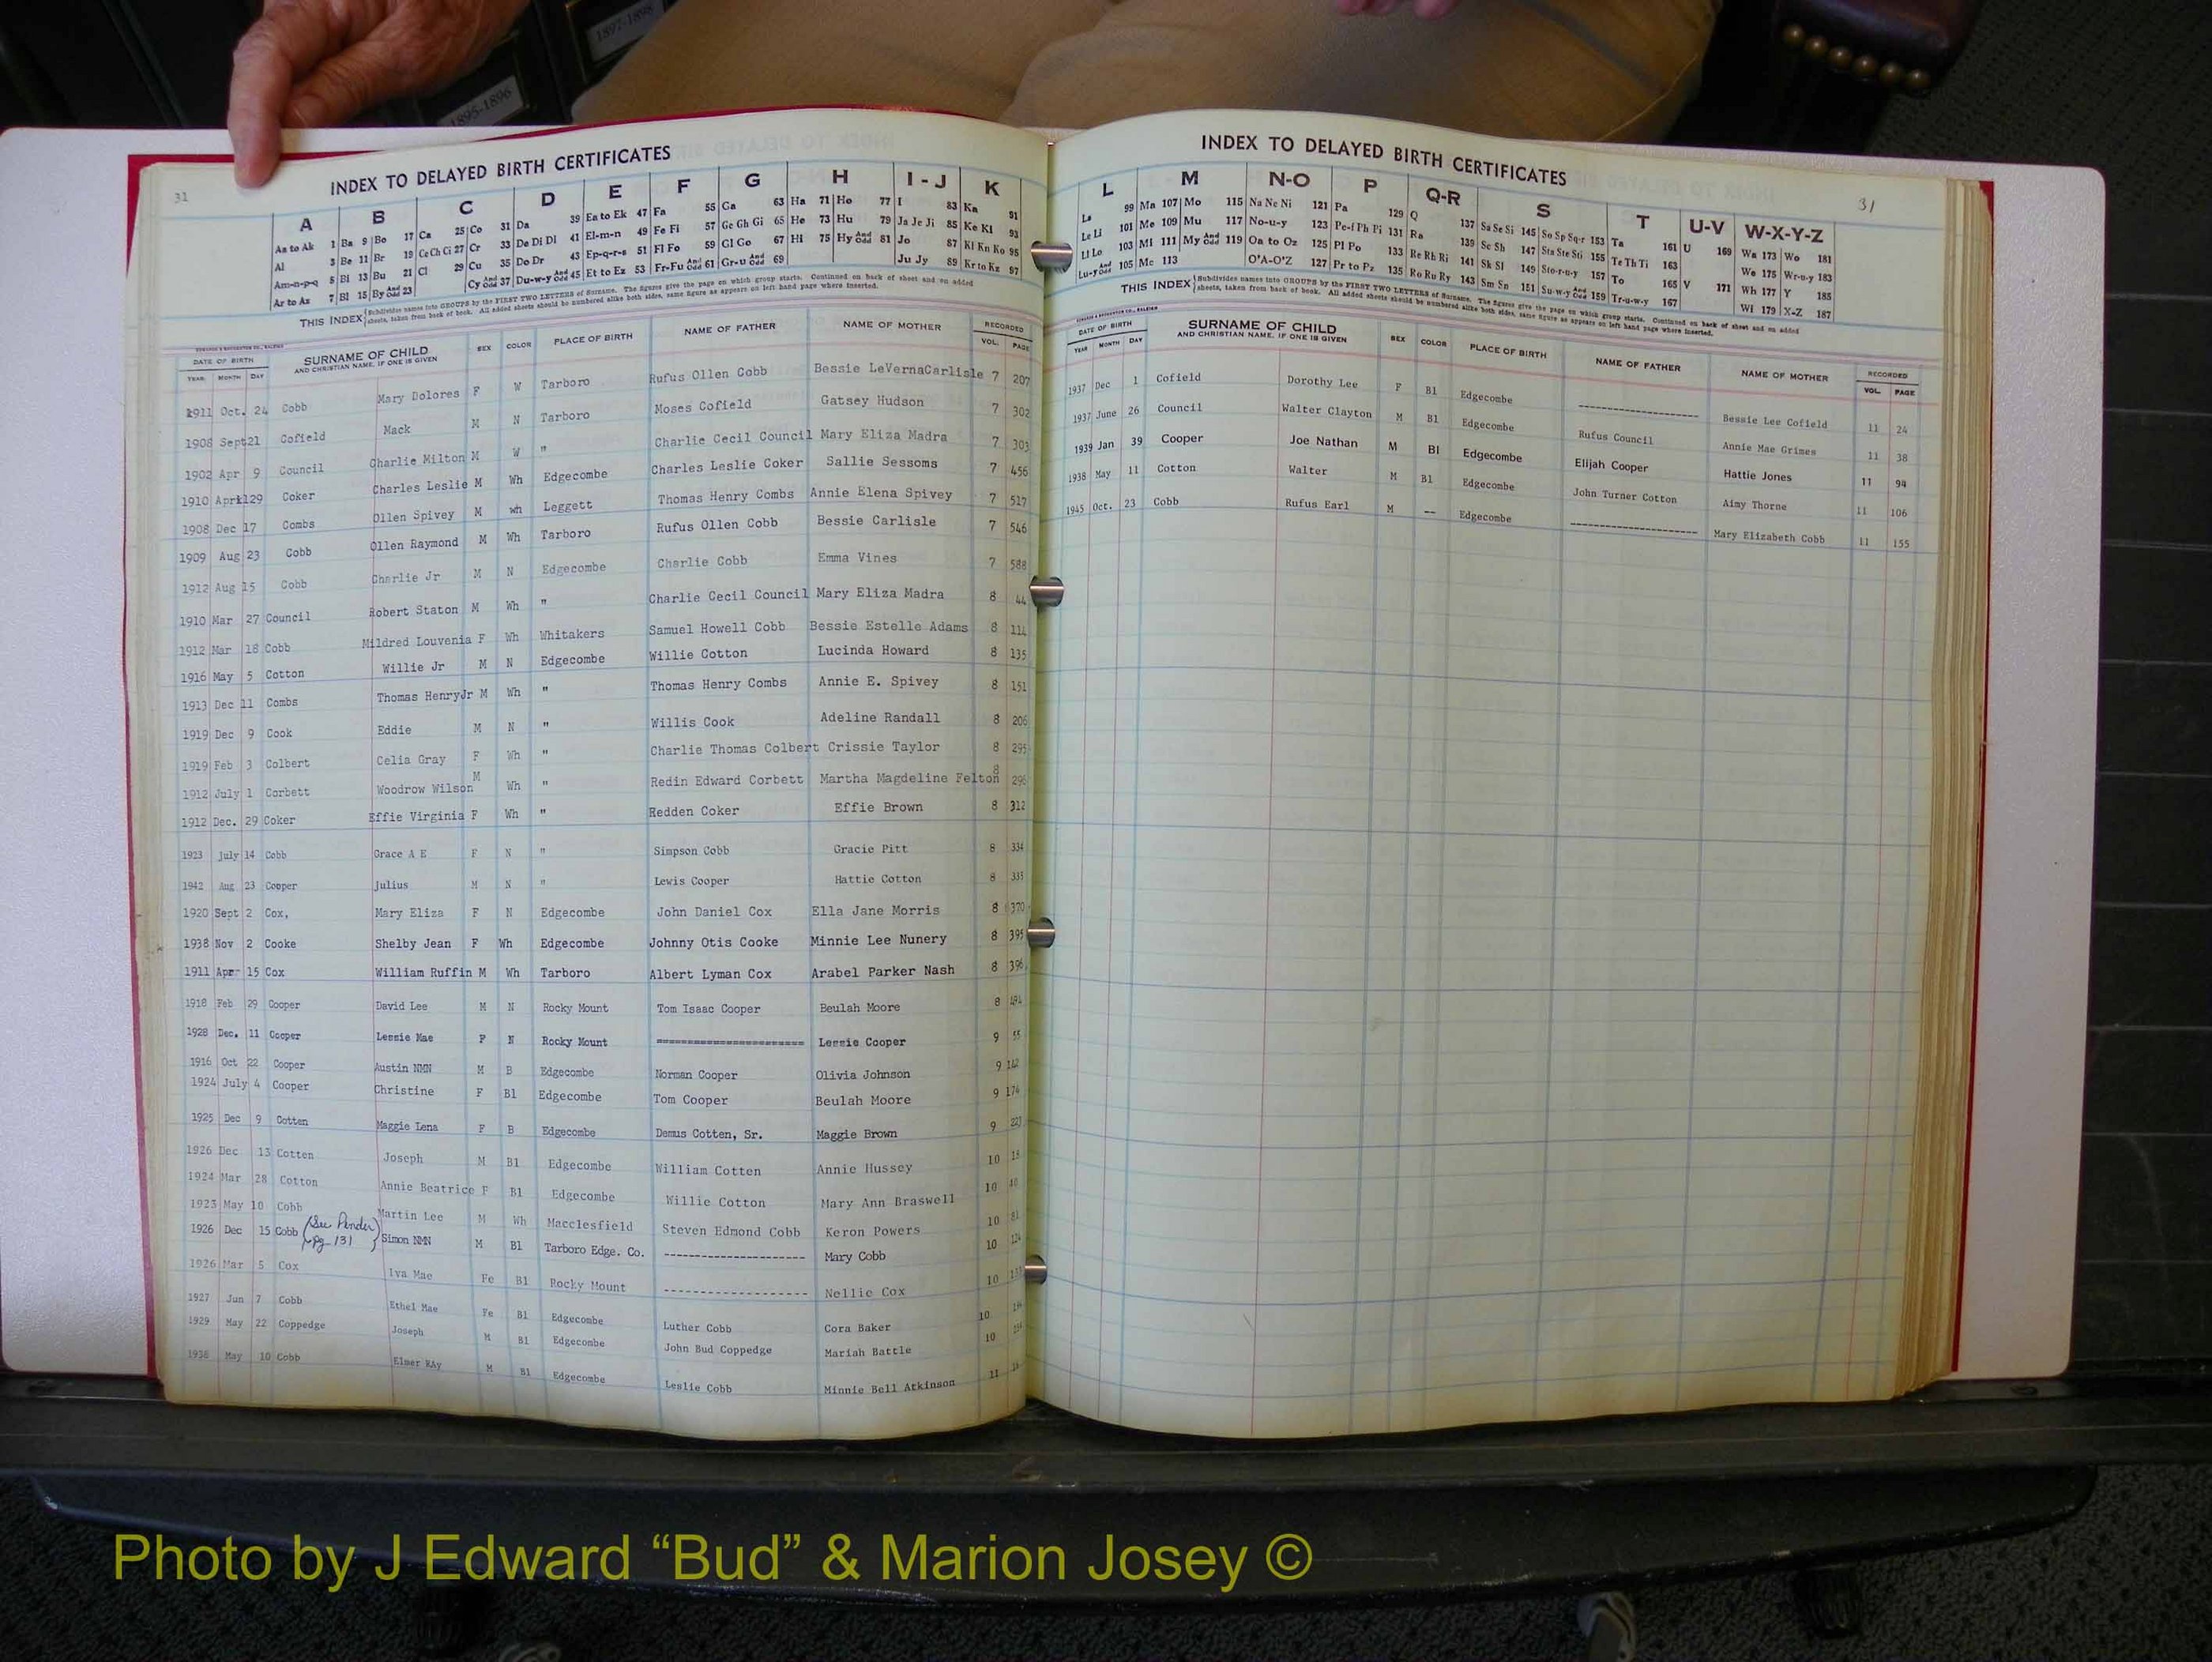 1897-1898
1895-1896
31
INDEX TO DELAYED BIRTH CERTIFICATES
A B C D E F G H I - J K
Aa to Ak 1 Ba 9 Bo 17 Ca 25 Co 31 Da 39 Ea to Ek 47 Fa 55 Ga 63 Ha 71 Ho 77 I 83 Ka 91
Al 3 Be 11 Br 19 Ce Ch Ci 27 Cr 33 De Di Dl 41 El-m-n 49 Fe Fi 57 Ge Gh Gi 65 He 73 Hu 79 Ja Je Ji 85 Ke Kl 93
Am-n-p-q 5 Bi 13 Bu 21 Cl 29 Cu 35 Do Dr 43 Ep-q-r-s 51 Fl Fo 59 Gl Go 67 Hi 75 Hy And Odd 81 Jo 87 Kl Kn Ko 95
Ar to Az 7 Bl 15 By And Odd 23 Cy And Odd 37 Du-w-y And Odd 45 Et to Ez 53 Fr-Fu And Odd 61 Gr-u And Odd 69 Ju Jy 89 Kr to Kz 97
THIS INDEX Subdivides names into GROUPS by the FIRST TWO LETTERS of Surname. The figures give the page on which group starts. Continued on back of sheet and on added
sheets, taken from back of book. All added sheets should be numbered alike both sides, same figure as appears on left hand page where inserted.
DATE OF BIRTH SURNAME OF CHILD SEX COLOR PLACE OF BIRTH NAME OF FATHER NAME OF MOTHER RECORDED
YEAR MONTH DAY AND CHRISTIAN NAME, IF ONE IS GIVEN VOL. PAGE
1911 Oct. 24 Cobb Mary Dolores F W Tarboro Rufus Ollen Cobb Bessie LeVernaCarlisle 7 207
1908 Sept21 Cofield Mack M N Tarboro Moses Cofield Gatsey Hudson 7 302
1902 Apr 9 Council Charlie Milton M W " Charlie Cecil Council Mary Eliza Madra 7 303
1910 April29 Coker Charles Leslie M Wh Edgecombe Charles Leslie Coker Sallie Sessoms 7 456
1908 Dec 17 Combs Ollen Spivey M wh Leggett Thomas Henry Combs Annie Elena Spivey 7 517
1909 Aug 23 Cobb Ollen Raymond M Wh Tarboro Rufus Ollen Cobb Bessie Carlisle 7 546
1912 Aug 15 Cobb Charlie Jr M N Edgecombe Charlie Cobb Emma Vines 7 588
1910 Mar 27 Council Robert Staton M Wh " Charlie Cecil Council Mary Eliza Madra 8 44
1912 Mar 18 Cobb Mildred Louvenia F Wh Whitakers Samuel Howell Cobb Bessie Estelle Adams 8 114
1916 May 5 Cotton Willie Jr M N Edgecombe Willie Cotton Lucinda Howard 8 135
1913 Dec 11 Combs Thomas HenryJr M Wh " Thomas Henry Combs Annie E. Spivey 8 151
1919 Dec 9 Cook Eddie M N " Willis Cook Adeline Randall 8 206
1919 Feb 3 Colbert Celia Gray F Wh " Charlie Thomas Colbert Crissie Taylor 8 295
1912 July 1 Corbett Woodrow Wilson M Wh " Redin Edward Corbett Martha Magdeline Felton 8 296
1912 Dec. 29 Coker Effie Virginia F Wh " Redden Coker Effie Brown 8 312
1923 July 14 Cobb Grace A E F N " Simpson Cobb Gracie Pitt 8 334
1942 Aug 23 Cooper Julius M N " Lewis Cooper Hattie Cotton 8 335
1920 Sept 2 Cox, Mary Eliza F N Edgecombe John Daniel Cox Ella Jane Morris 8 370
1938 Nov 2 Cooke Shelby Jean F Wh Edgecombe Johnny Otis Cooke Minnie Lee Nunery 8 395
1911 Apr 15 Cox William Ruffin M Wh Tarboro Albert Lyman Cox Arabel Parker Nash 8 396
1918 Feb 29 Cooper David Lee M N Rocky Mount Tom Isaac Cooper Beulah Moore 8 484
1928 Dec. 11 Cooper Lessie Mae F N Rocky Mount ======================= Lessie Cooper 9 55
1916 Oct 22 Cooper Austin NMN M B Edgecombe Norman Cooper Olivia Johnson 9 142
1924 July 4 Cooper Christine F Bl Edgecombe Tom Cooper Beulah Moore 9 174
1925 Dec 9 Cotten Maggie Lena F B Edgecombe Demus Cotten, Sr. Maggie Brown 9 223
1926 Dec 13 Cotten Joseph M Bl Edgecombe William Cotten Annie Hussey 10 18
1924 Mar 28 Cotton Annie Beatrice F Bl Edgecombe Willie Cotton Mary Ann Braswell 10 40
1923 May 10 Cobb Martin Lee M Wh Macclesfield Steven Edmond Cobb Keron Powers 10 81
1926 Dec 15 Cobb (See Pender pg 131) Simon NMN M Bl Tarboro Edge. Co. ---------------------- Mary Cobb 10 124
1926 Mar 5 Cox Iva Mae Fe Bl Rocky Mount ---------------------- Nellie Cox 10
1927 Jun 7 Cobb Ethel Mae Fe Bl Edgecombe Luther Cobb Cora Baker 10
1929 May 22 Coppedge Joseph M Bl Edgecombe John Bud Coppedge Mariah Battle 10
1938 May 10 Cobb Elmer RAy M Bl Edgecombe Leslie Cobb Minnie Bell Atkinson 11
31
INDEX TO DELAYED BIRTH CERTIFICATES
L M N-O P Q-R S T U-V W-X-Y-Z
La 99 Ma 107 Mo 115 Na Ne Ni 121 Pa 129 Q 137 Sa Se Si 145 So Sp Sq-r 153 Ta 161 U 169 Wa 173 Wo 181
Le Li 101 Me 109 Mu 117 No-u-y 123 Pe-f Ph Pi 131 Ra 139 Sc Sh 147 Sta Ste Sti 155 Te Th Ti 163 We 175 Wr-u-y 183
Ll Lo 103 Mi 111 My And Odd 119 Oa to Oz 125 Pl Po 133 Re Rh Ri 141 Sk Sl 149 Sto-r-u-y 157 To 165 V 171 Wh 177 Y 185
Lu-y And Odd 105 Mc 113 O'A-O'Z 127 Pr to Pz 135 Ro Ru Ry 143 Sm Sn 151 Su-w-y And Odd 159 Tr-u-w-y 167 Wi 179 X-Z 187
THIS INDEX Subdivides names into GROUPS by the FIRST TWO LETTERS of Surname. The figures give the page on which group starts. Continued on back of sheet and on added
sheets, taken from back of book. All added sheets should be numbered alike both sides, same figure as appears on left hand page where inserted.
DATE OF BIRTH SURNAME OF CHILD SEX COLOR PLACE OF BIRTH NAME OF FATHER NAME OF MOTHER RECORDED
YEAR MONTH DAY AND CHRISTIAN NAME, IF ONE IS GIVEN VOL. PAGE
1937 Dec 1 Cofield Dorothy Lee F Bl Edgecombe -------------------- Bessie Lee Cofield 11 24
1937 June 26 Council Walter Clayton M Bl Edgecombe Rufus Council Annie Mae Grimes 11 38
1939 Jan 39 Cooper Joe Nathan M Bl Edgecombe Elijah Cooper Hattie Jones 11 94
1938 May 11 Cotton Walter M Bl Edgecombe John Turner Cotton Aimy Thorne 11 106
1945 Oct. 23 Cobb Rufus Earl M -- Edgecombe -------------------- Mary Elizabeth Cobb 11 155
Photo by J Edward “Bud” & Marion Josey ©